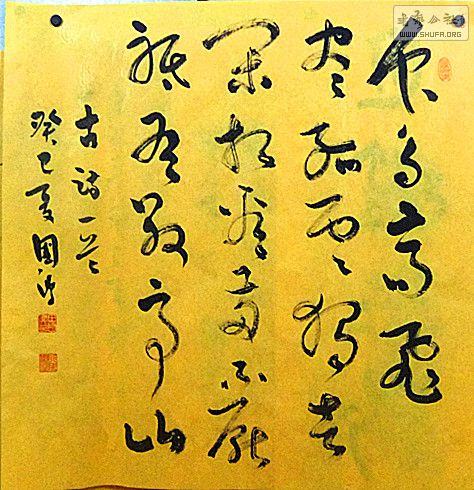 众鸟高飞
尽孤云独去
闲相看两不厌
祇有敬亭山
古诗一首
癸巳夏國
书法公社
WWW.SHUFA.ORG